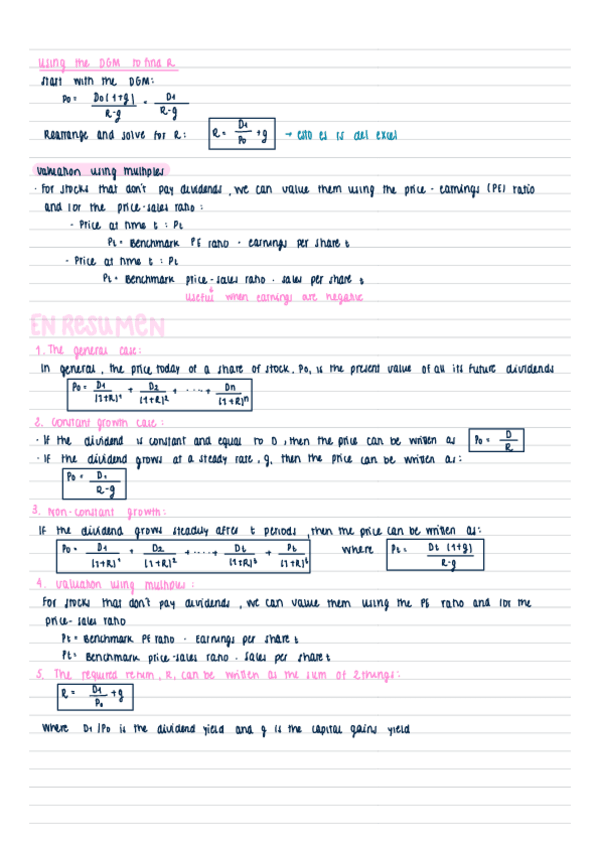 Using the DGM to find R
Start with the DGM:
P0 = D0(1+g) / R-g = D1 / R-g
Rearrange and solve for R: R = D1/P0 + g → esto es is del excel
Valuation using multiples
· For stocks that don't pay dividends, we can value them using the price - earnings (PE) ratio
and / or the price-sales ratio:
- Price at time t : Pt
Pt = Benchmark PE ratio · earnings per share t
- Price at time t : Pt
Pt = Benchmark price-sales ratio · sales per share t
useful when earnings are negative
EN RESUMEN
1. The general case:
In general, the price today of a share of stock, P0, is the present value of all its future dividends
P0 = D1/(1+R)^1 + D2/(1+R)^2 + ···· + Dn/(1+R)^n
2. Constant growth case:
· If the dividend is constant and equal to D, then the price can be written as P0 = D/R
· If the dividend grows at a steady rate, g, then the price can be written as:
P0 = D1 / R-g
3. Non-constant growth:
If the dividend grows steadily after t periods, then the price can be written as:
P0 = D1/(1+R)^1 + D2/(1+R)^2 + ····· + Dt/(1+R)^t + Pt/(1+R)^t where Pt = Dt (1+g) / R-g
4. Valuation using multiples:
For stocks that don't pay dividends, we can value them using the PE ratio and / or the
price-sales ratio
Pt = Benchmark PE ratio · Earnings per share t
Pt = Benchmark price-sales ratio · Sales per share t
5. The required return, R, can be written as the sum of 2 things:
R = D1/P0 + g
Where D1/P0 is the dividend yield and g is the capital gains yield